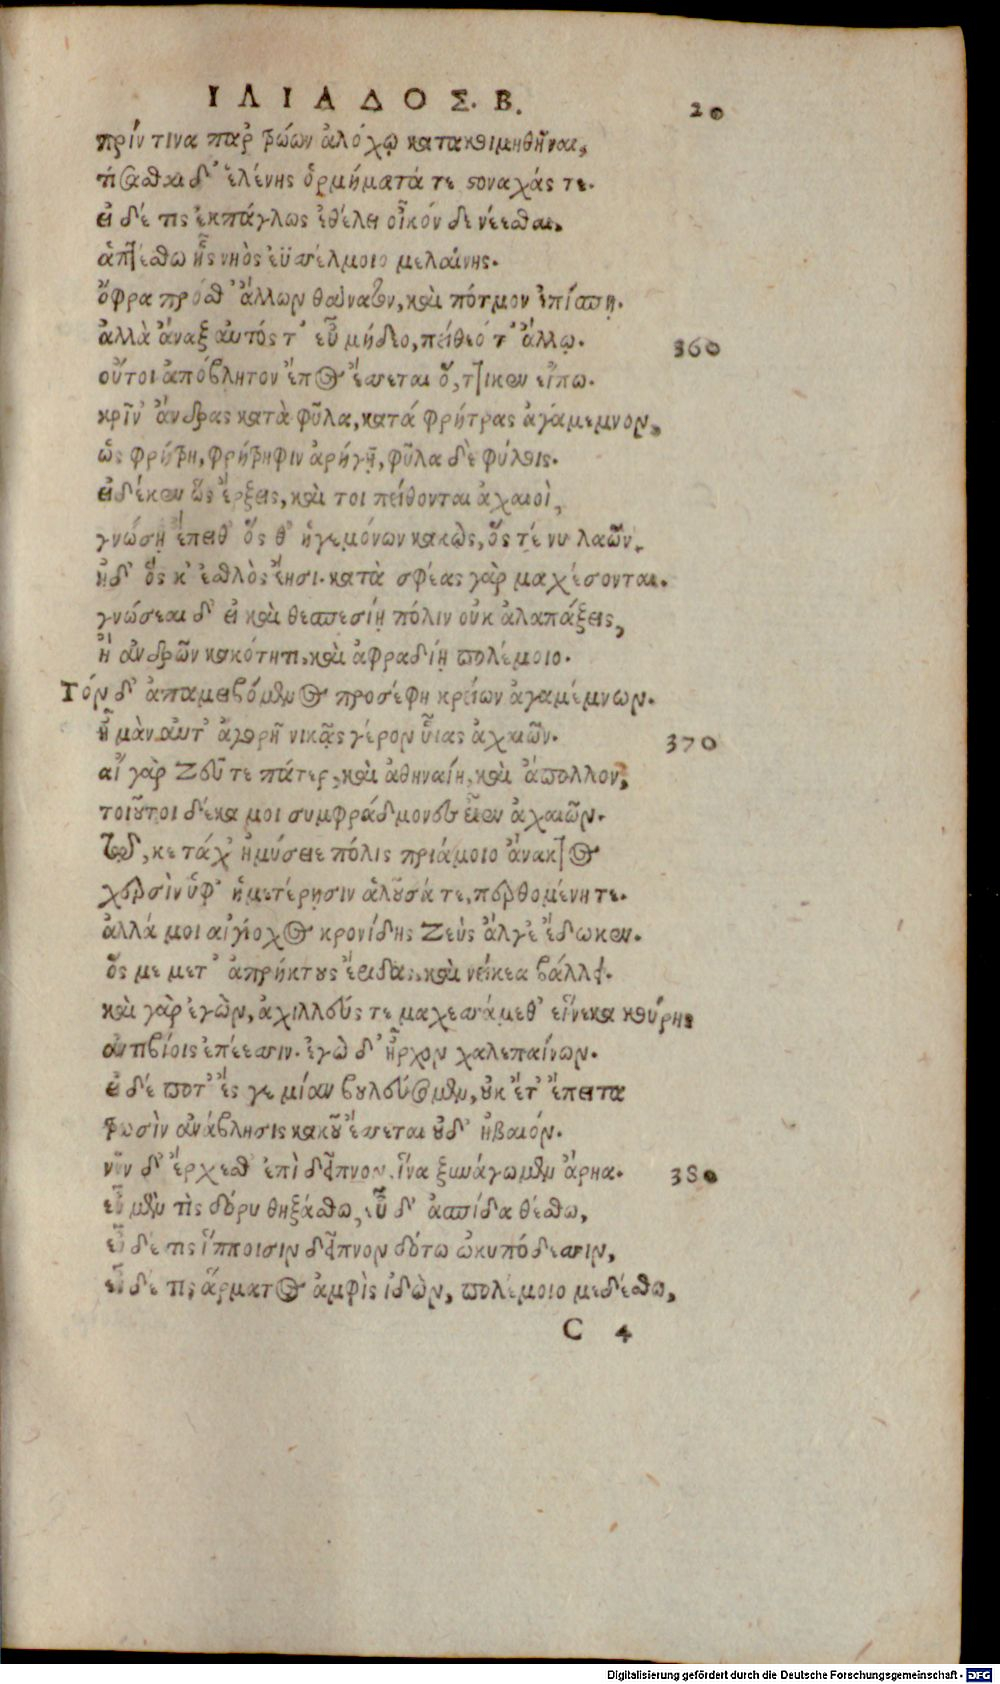 ΙΛΙΑΔΟΣ. Β. 20
πρίν τινα παρ τρώων ἀλόχῳ κατακοιμηθῆναι,
τίσαθαι δ' ἑλένης ὁρμήματά τε στοναχάς τε.
εἰ δέ τις ἐκπάγλως ἐθέλει οἶκόν δε νέεσθαι,
ἁπτέσθω ἧς νηὸς ἐϋσσέλμοιο μελαίνης.
ὄφρα πρόσθ' ἄλλων θάνατον, καὶ πότμον ἐπίσπῃ.
ἀλλὰ ἄναξ αὐτός τ' εὖ μήδεο, πείθεό τ' ἄλλῳ. 360
οὔτοι ἀπόβλητον ἔπος ἔσσεται ὅ, ττικεν εἴπω.
κρῖν' ἄνδρας κατὰ φῦλα, κατά φρήτρας ἀγάμεμνον,
ὡς φρήτρη, φρήτρηφιν ἀρήγῃ, φῦλα δὲ φύλοις.
εἰ δέκεν ὣς ἔρξεις, καὶ τοι πείθονται ἀχαιοὶ,
γνώσῃ ἔπειθ' ὅς θ' ἡγεμόνων κακὸς, ὅς τέ νυ λαῶν,
ἠδ' ὅς κ' ἐσθλὸς ἔησι. κατὰ σφέας γὰρ μαχέσονται.
γνώσεαι δ' εἰ καὶ θεσπεσίῃ πόλιν οὐκ ἀλαπάξεις,
ἢ ἀνδρῶν κακότητι, καὶ ἀφραδίῃ πολέμοιο.
Τόν δ' ἀπαμειβόμενος προσέφη κρείων ἀγαμέμνων.
ἦ μὰν αὖτ' ἀγορῇ νικᾷς γέρον ὗιας ἀχαιῶν. 370
αἲ γὰρ Ζεῦ τε πάτερ, καὶ ἀθηναίη, καὶ ἄπολλον,
τοιοῦτοι δέκα μοι συμφράδμονες εἶεν ἀχαιῶν.
τῷ, κε τάχ' ἠμύσειε πόλις πριάμοιο ἄνακτος
χερσὶν ὑφ' ἡμετέρῃσιν ἁλοῦσά τε, περθομένη τε.
ἀλλά μοι αἰγίοχος κρονίδης Ζεὺς ἄλγε' ἔδωκεν.
ὅς με μετ' ἀπρήκτους ἔριδας, καὶ νείκεα βάλλει.
καὶ γὰρ ἐγὼν, ἀχιλλεύς τε μαχεσσάμεθ' εἵνεκα κούρης
ἀντιβίοις ἐπέεσσιν. ἐγὼ δ' ἦρχον χαλεπαίνων.
εἰ δέ ποτ' ἔς γε μίαν βουλεύσομεν, οὐκ ἔτ' ἔπειτα
τρωσὶν ἀνάβλησις κακοῦ ἔσσεται οὐδ' ἠβαιόν.
νῦν δ' ἔρχεσθ' ἐπὶ δεῖπνον, ἵνα ξυνάγωμεν ἄρηα. 380
εὖ μέν τὶς δόρυ θηξάσθω, εὖ δ' ἀσπίδα θέσθω,
εὖ δέ τις ἵπποισιν δεῖπνον δότω ὠκυπόδεσσιν,
εὖ δέ τις ἅρματος ἀμφὶς ἰδὼν, πολέμοιο μεδέσθω,
C 4
Digitalisierung gefördert durch die Deutsche Forschungsgemeinschaft - DFG